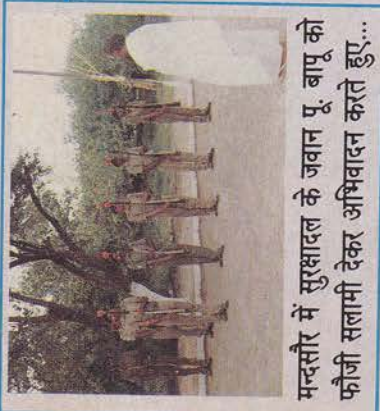 मन्दसौर में सुरक्षादल के जवान पू. बापू को
फौजी सलामी देकर अभिवादन करते हुए...